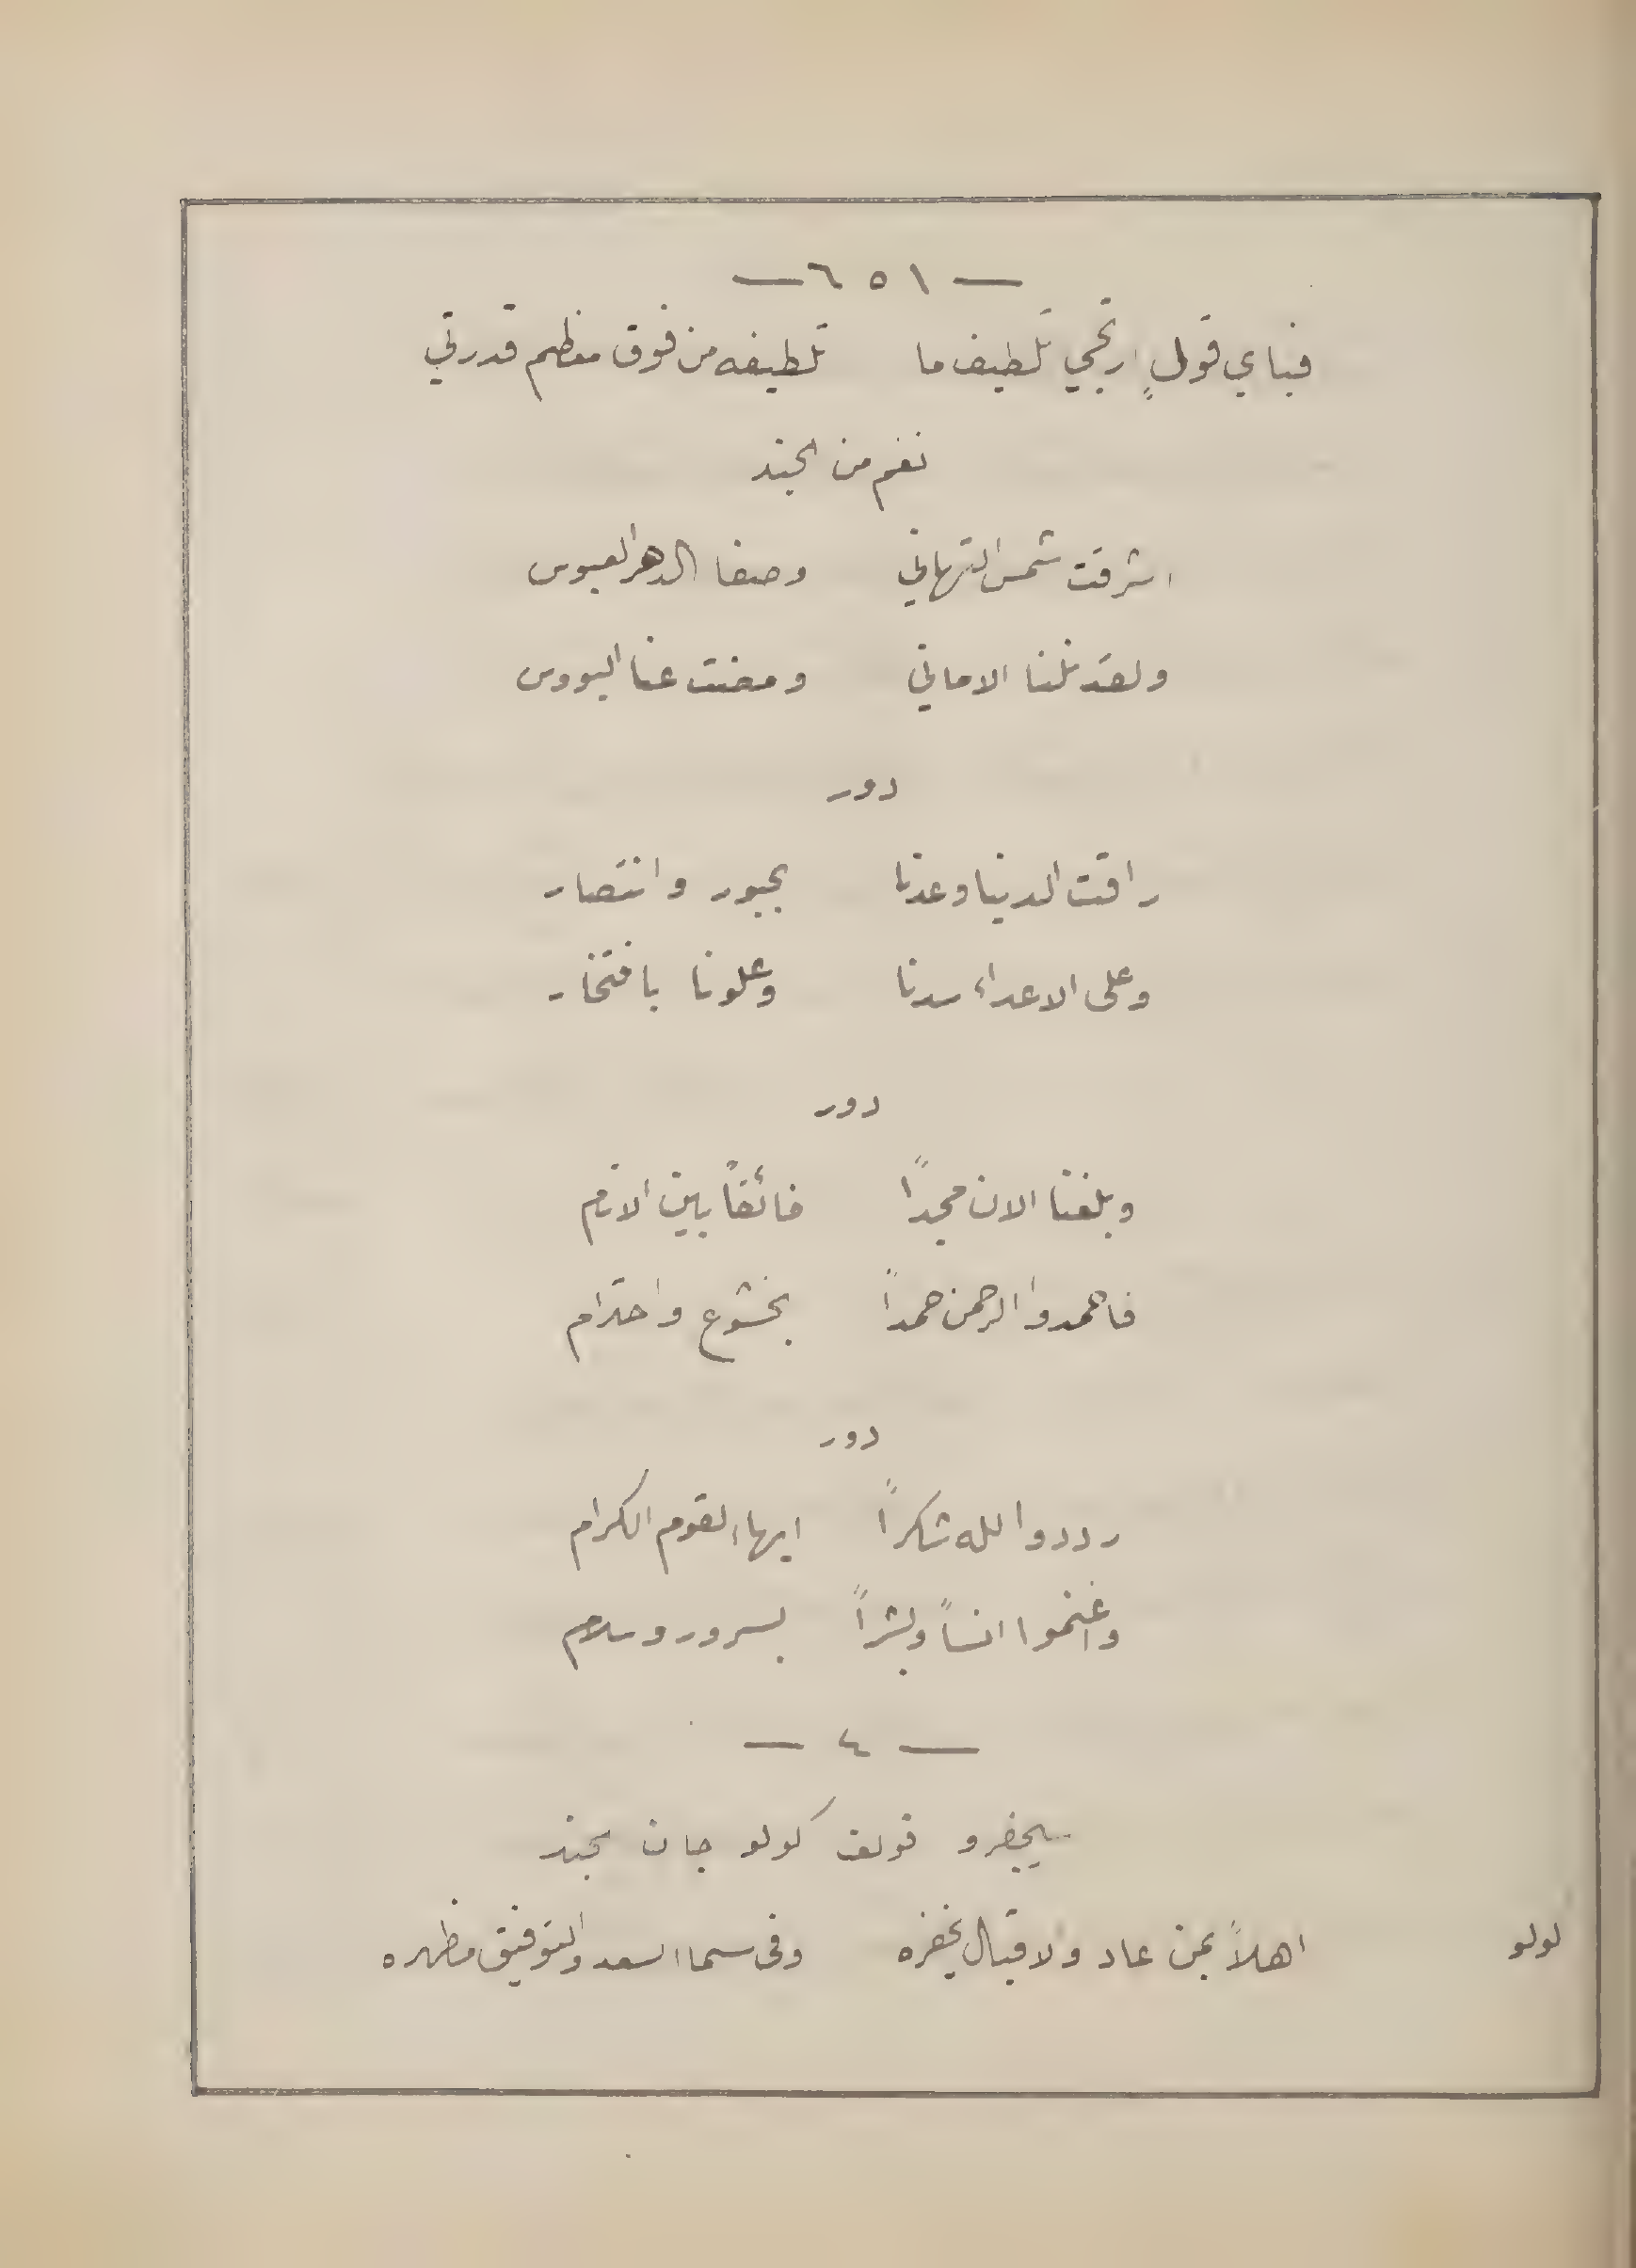 — ٦٥١ —
فباي قولٍ ارتجي تلطيف ما تلطيفه من فوق معظم قدرتي
نغم من الجند
اشرقت شمس التهاني وصفا الدهر العبوس
ولقد نلنا الاماني ومضت عنا البووس
دور
راقت الدنيا وعدنا بحبور وانتصار
وعلى الاعداء سدنا وعلونا بافتخار
دور
وبلغنا الان مجداً فائقاً بين الانام
فاحمدوا الرحمن حمداً بخشوع واحترام
دور
رددوا لله شكراً ايها القوم الكرام
واغنموا انساً وبشراً بسرور وسلام
— ٤ —
سيجفرو فولف لولو جان جند
لولو اهلاً بمن عاد والاقبال يخفره وفى سما السعد والتوفيق مظهره